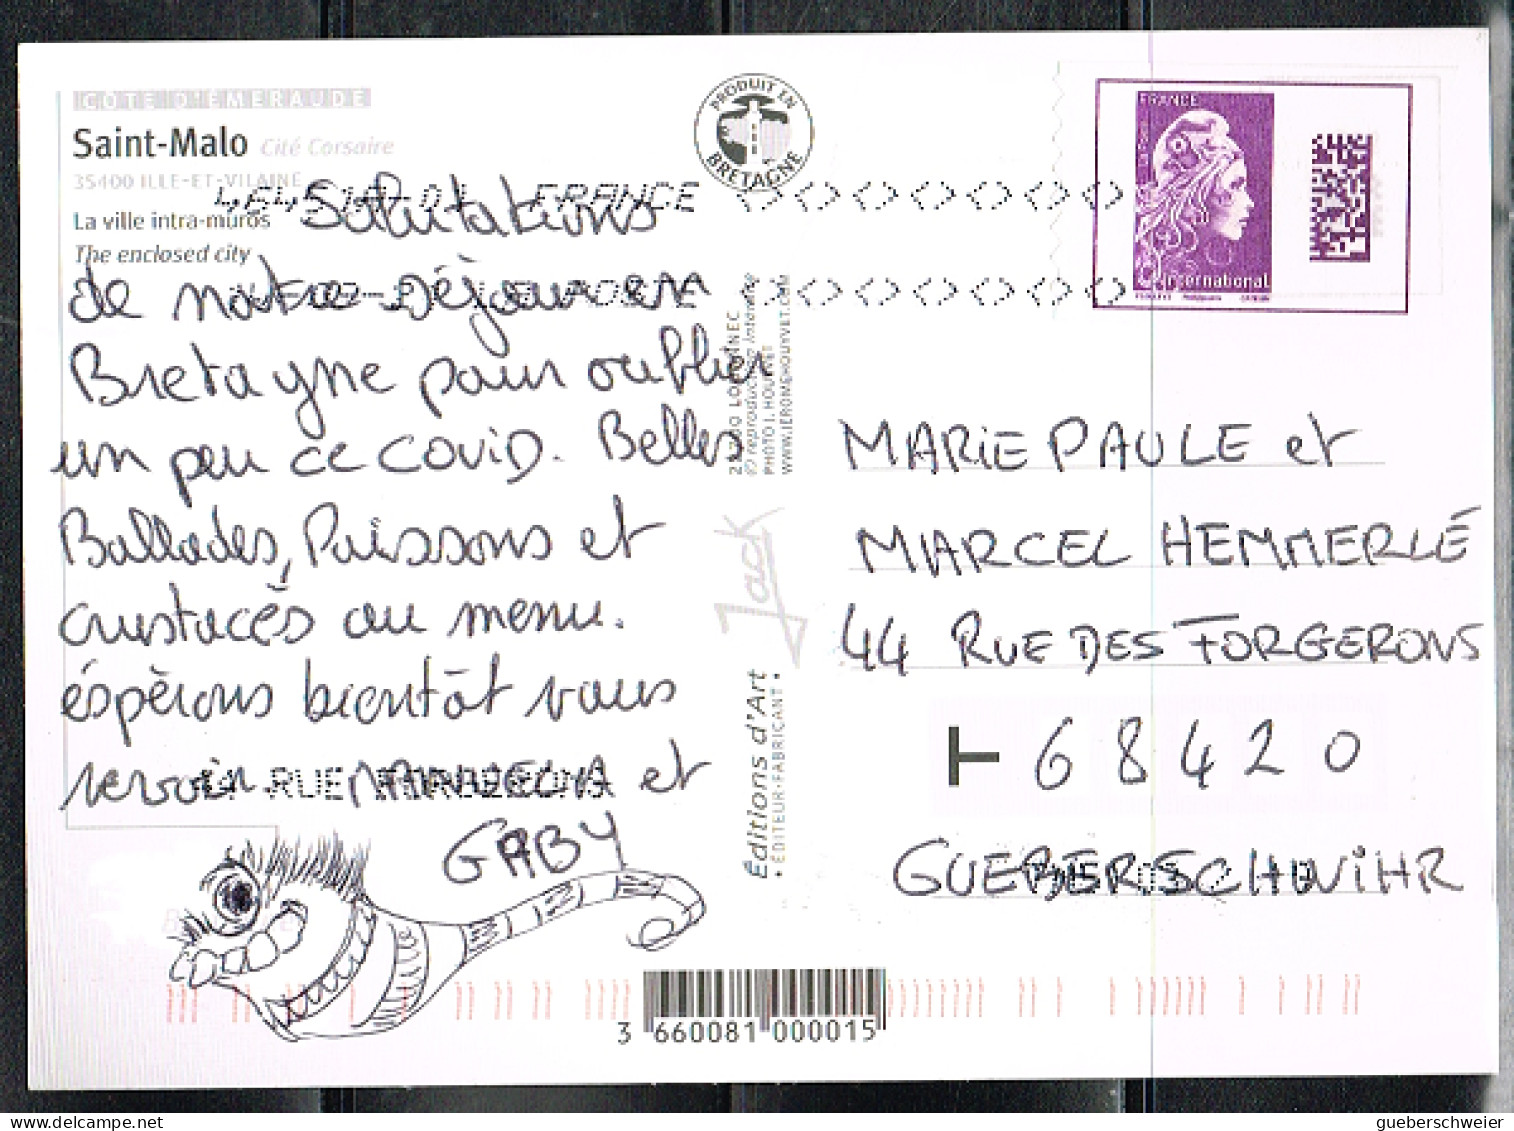 COTE D'EMERAUDE
Saint-Malo Cité Corsaire
35400 ILLE-ET-VILAINE
La ville intra-muros
The enclosed city
PRODUIT EN
BRETAGNE
FRANCE
FRANCE
International
Salutations
de notre Séjour en
Bretagne pour oublier
un peu ce COVID. Belles
Ballades, Poissons et
crustacés au menu.
éspèrons bientôt vous
revoir. MANUELA et
GABY
44 RUE
© reproduction interdite
PHOTO J. HOUYVET
WWW.JEROMEHOUYVET.COM
Jack
Éditions d'Art
• ÉDITEUR-FABRICANT •
MARIE PAULE et
MARCEL HEMMERLÉ
44 RUE DES FORGERONS
T 68420
GUEBERSCHWIHR
3 660081 000015
delcampe.net
gueberschweier